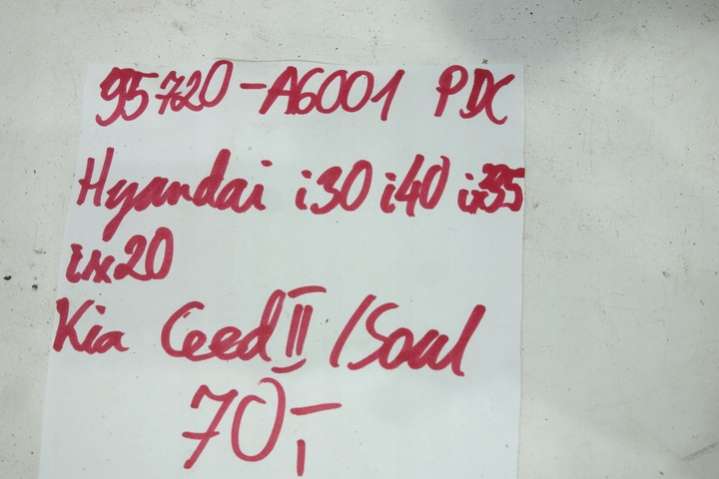 95720-A6001 PDC
Hyandai i30 i40 ix35
ix20
Kia Ceed II / Soul
70,-